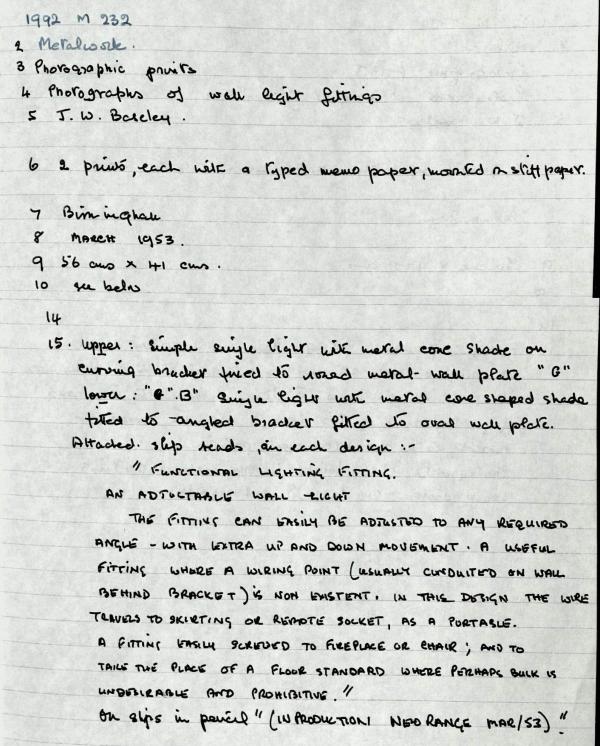 1992 M 232
2 Metalwork.
3 Photographic prints
4 Photographs of wall light fittings
5 J. W. Baseley.
6 2 prints, each with a typed memo paper, mounted on stiff paper.
7 Birmingham
8 MARCH 1953.
9 56 cms x 41 cms.
10 see below
14
15. upper: simple single light with metal cone shade on
curving bracket fixed to round metal wall plate "G"
lower: "G".B" Single light with metal cone shaped shade
fitted to angled bracket fitted to oval wall plate.
Attached slip reads, on each design:-
" FUNCTIONAL LIGHTING FITTING.
AN ADJUSTABLE WALL-LIGHT
THE FITTING CAN EASILY BE ADJUSTED TO ANY REQUIRED
ANGLE - WITH EXTRA UP AND DOWN MOVEMENT. A USEFUL
FITTING WHERE A WIRING POINT (USUALLY CONDUITED ON WALL
BEHIND BRACKET) IS NON EXISTENT. IN THIS DESIGN THE WIRE
TRAVELS TO SKIRTING OR REMOTE SOCKET, AS A PORTABLE.
A FITTING EASILY SCREWED TO FIREPLACE OR CHAIR; AND TO
TAKE THE PLACE OF A FLOOR STANDARD WHERE PERHAPS BULK IS
UNDESIRABLE AND PROHIBITIVE."
On slips in pencil "(IN PRODUCTION NEW RANGE MAR/53)"